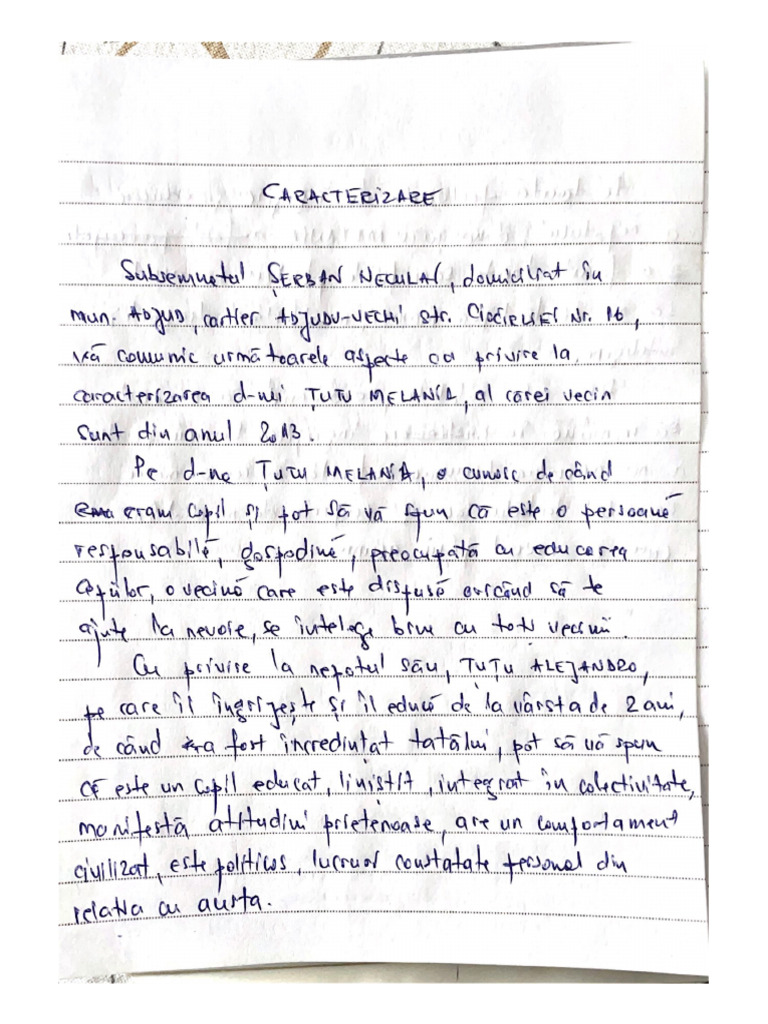 CARACTERIZARE
Subsemnatul ȘERBAN NECULAI, domiciliat în
mun. ADJUD, cartier ADJUDU-VECHI str. CIOCÎRLIEI Nr. 16,
vă comunic următoarele aspecte cu privire la
caracterizarea d-nei ȚUȚU MELANIA, al cărei vecin
sunt din anul 2013.
Pe d-na ȚUȚU MELANIA, o cunosc de când
eram copil și pot să vă spun că este o persoană
responsabilă, gospodină, preocupată cu educarea
copiilor, o vecină care este dispusă oricând să te
ajute la nevoie, se înțelege bine cu toți vecinii.
Cu privire la nepotul său, ȚUȚU ALEJANDRO,
pe care îl îngrijește și îl educă de la vârsta de 2 ani,
de când a fost încredințat tatălui, pot să vă spun
că este un copil educat, liniștit, integrat în colectivitate,
manifestă atitudini prietenoase, are un comportament
civilizat, este politicos, lucruri constatate personal din
relația cu aceasta.